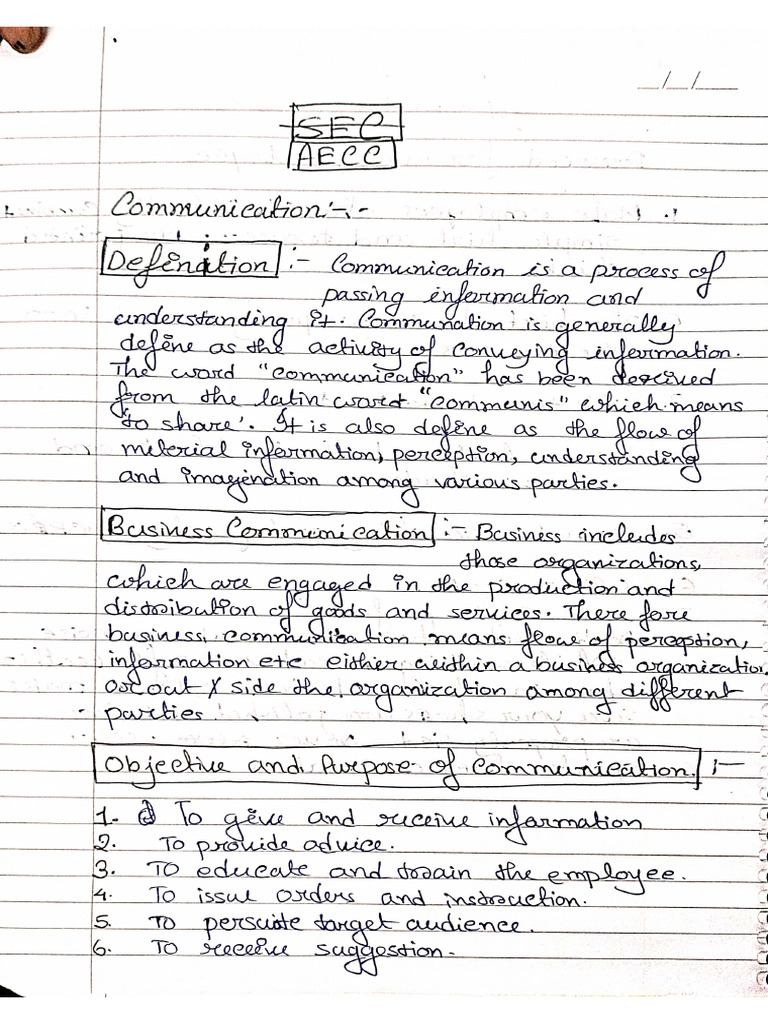 __/__/__
SEC
AECC
Communication :-
Defination :- Communication is a process of
passing information and
understanding it. Communation is generally
define as the activity of conveying information.
The word "communication" has been derived
from the latin word "communis" which means
'to share'. It is also define as the flow of
meterial information, perception, understanding
and imagination among various parties.
Business Communication :- Business includes
those organizations,
which are engaged in the production and
distribution of goods and services. There fore
business communication means flow of perception,
information etc either within a business organization
or out side the organization among different
parties
Objective and Purpose of Communication. :-
1. To give and receive information
2. To provide advice.
3. To educate and train the employee.
4. To issue orders and instruction.
5. To persuate target audience.
6. To receive suggestion.